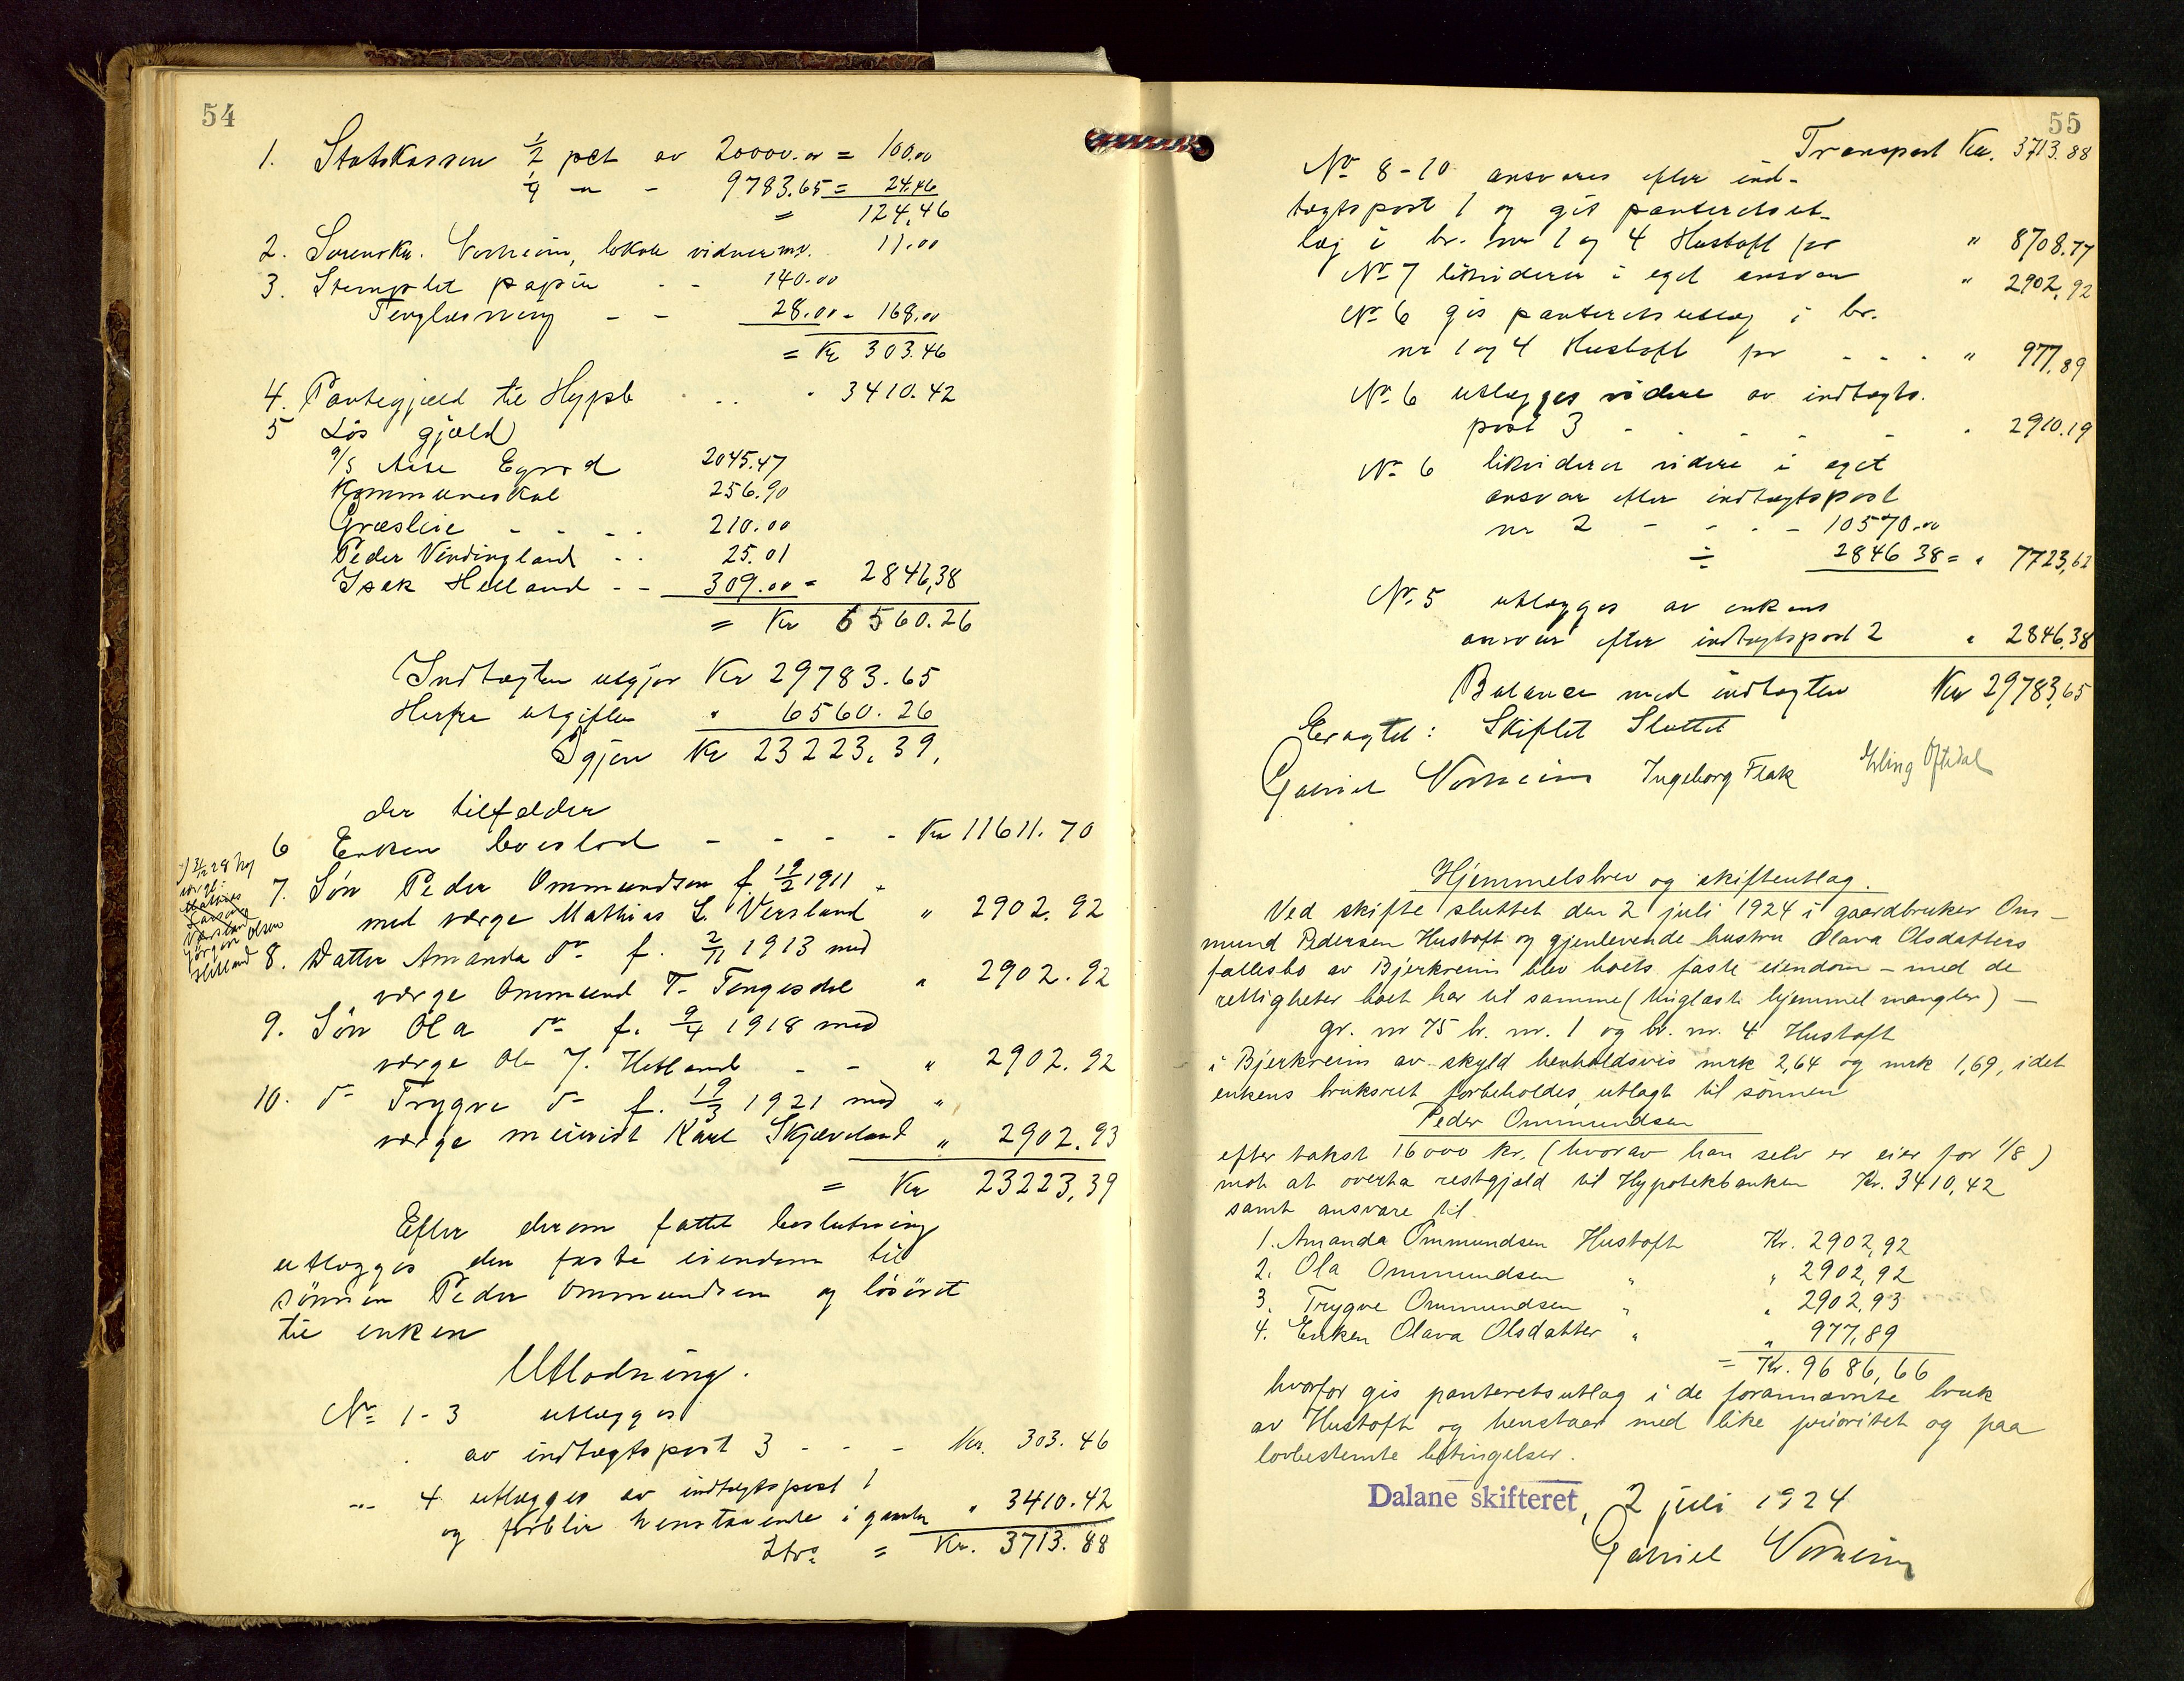 54
1. Statskassen 1/2 pct av 20000.00 = 100.00
1/4 — " — - 9783.65 = 24.46
= 124,46
2. Sorenskr. Vorheim, lokale vidner mv. 11.00
3. Stemplet papir - - 140.00
Tinglæsning - - 28.00 = 168.00
= Kr 303.46
4. Pantegjæld til Hypb . . . . 3410.42
5 Løs gjæld
a/s Aase Egersd 2045.47
Kommuneskat 256.90
Græsleie - - . . 210.00
Peder Vindingland . . 25.01
Isak Helland - - 309.00 = 2846,38
= Kr 6560.26
Indtægten utgjør Kr 29783.65
Herfra utgiften " 6560.26
Igjen Kr 23223,39,
der tilfalder
6 Enken boeslod - - - - Kr 11611.70
7. Søn Peder Ommundsen f. 19/2 1911
med værge Mathias L. Versland " 2902.92
8. Datter Amanda do f. 2/11 1913 med
værge Ommund T. Tengesdal " 2902.92
9. Søn Ola do f. 9/4 1918 med
værge Ole J. Hetland - - " 2902.92
10. do Trygve do f. 19/3 1921 med "
værge meierist Karl Skjæveland " 2902.93
= Kr 23223,39
Efter derom fattet beslutning
utlægges den faste eiendom til
sønnen Peder Ommundsen og løsøret
til enken
Utlodning.
No 1-3 utlægges
av indtægtspost 3 - - - Kr. 303.46
-"- 4 utlægges av indtægtspost 1
og forblir henstaaende i gaarden " 3410.42
Ltrs = Kr. 3713.88
*) 3/12 28 ny
værge:
Mathias
Larsen
Versland
Jørgen Olsen
Hetland
55
Transport Kr. 3713.88
No 8-10 ansvares efter ind-
tægtspost 1 og gis panteretsut-
læg i br. nr 1 og 4 Hustoft for " 8708.77
No 7 likviderer i eget ansvar " 2902,92
No 6 gis panteretsutlæg i br.
nr 1 og 4 Hustoft for - . . . " 977,89
No 6 utlægges videre av indtægts.
post 3 - - - - - . 2910.19
No 6 likviderer videre i eget
ansvar efter indtægtspost
nr 2 - - - - 10570.00
÷ 2846 38 = " 7723,62
No 5 utlægges av enkens
ansvar efter indtægtspost 2 " 2846,38
Balance med indtægten Kr 29783,65
Eragtet: Skiftet Sluttet
Gabriel Vorheim Ingeborg Flak Erling Oftedal
Hjemmelsbrev og skifteutlag.
Ved skifte sluttet den 2 juli 1924 i gaardbruker Om-
mund Pedersen Hustoft og gjenlevende hustru Olava Olsdatters
fællesbo av Bjerkreim blev boets faste eiendom - med de
rettigheter boet har til samme (tinglæst hjemmel mangler) -
gr. nr 75 br. nr. 1 og br. nr. 4 Hustoft
i Bjerkreim av skyld henholdsvis mrk 2,64 og mrk 1,69, idet
enkens bruksret forbeholdes, utlagt til sønnen
Peder Ommundsen
efter takst 16000 kr. (hvorav han selv er eier for 1/8)
mot at overta restgjæld til Hypotekbanken Kr. 3410,42
samt ansvare til
1. Amanda Ommundsen Hustoft Kr. 2902,92
2. Ola Ommundsen " " 2902,92
3. Trygve Ommundsen " " 2902,93
4. Enken Olava Olsdatter " " 977,89
= Kr. 9686,66
hvorfor gis panteretsutlag i de forannævnte bruk
av Hustoft og henstaar med like prioritet og paa
lovbestemte betingelser.
Dalane skifteret, 2 juli 1924
Gabriel Vorheim